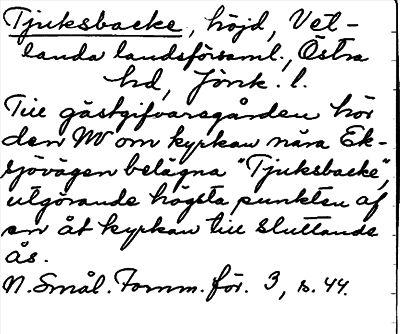 Tjuksbacke, höjd, Vet-
landa landsförsaml., Östra
hd, Jönk. l.
Till gästgifvaregården hör
den NV om kyrkan nära Ek-
sjövägen belägna "Tjuksbacke",
utgörande högsta punkten af
en åt kyrkan till sluttande
ås.
N. Smål. Fornm. för. 3, s. 44.